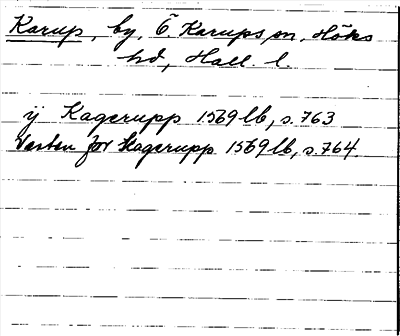 Karup, by, Ö. Karups sn, Höks
hd, Hall. l.
ij Kagerupp 1569 lb, s. 763
Vesten for Kagerupp 1569 lb, s. 764.